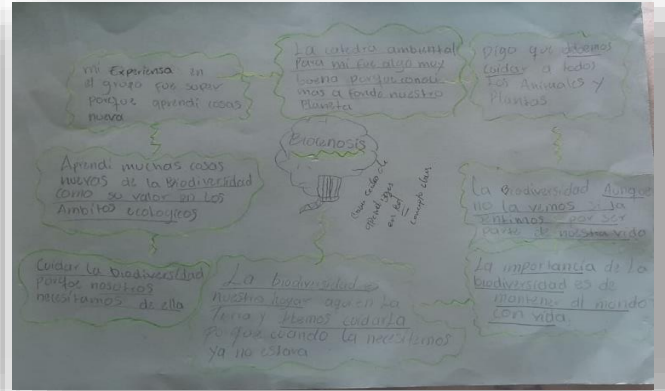 mi Experiensa en
el grupo fue super
porque aprendi cosas
nueva
La catedra ambiental
para mi fue algo muy
buena porque conoci
mas a fondo nuestro
Planeta
Digo que debemos
cuidar a todos
Los Animales y
Plantas
Biocenosis
Aprendi muchas cosas
nuevas de la Biodiversidad
como su valor en los
Ambitos ecologicos
La Biodiversidad Aunque
no la vemos si la
por ser
parte de nuestra vida
Cuidar la biodiversidad
porque nosotros
necesitamos de ella
La biodiversidad es
nuestro hogar aqui en la
tierra y cuidarla
porque cuando la necesitemos
ya no estara
La importancia de la
biodiversidad es de
mantener al mundo
con vida.